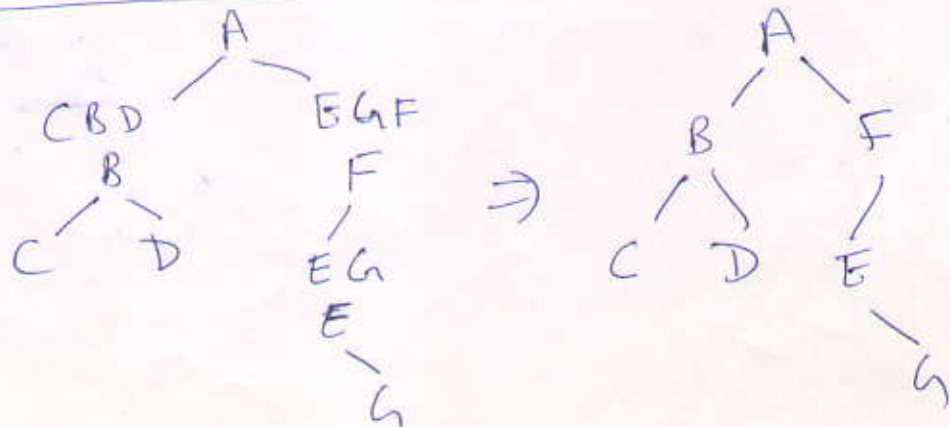 A
CBD EGF
B F
C D EG
E
G
⇒
A
B F
C D E
G